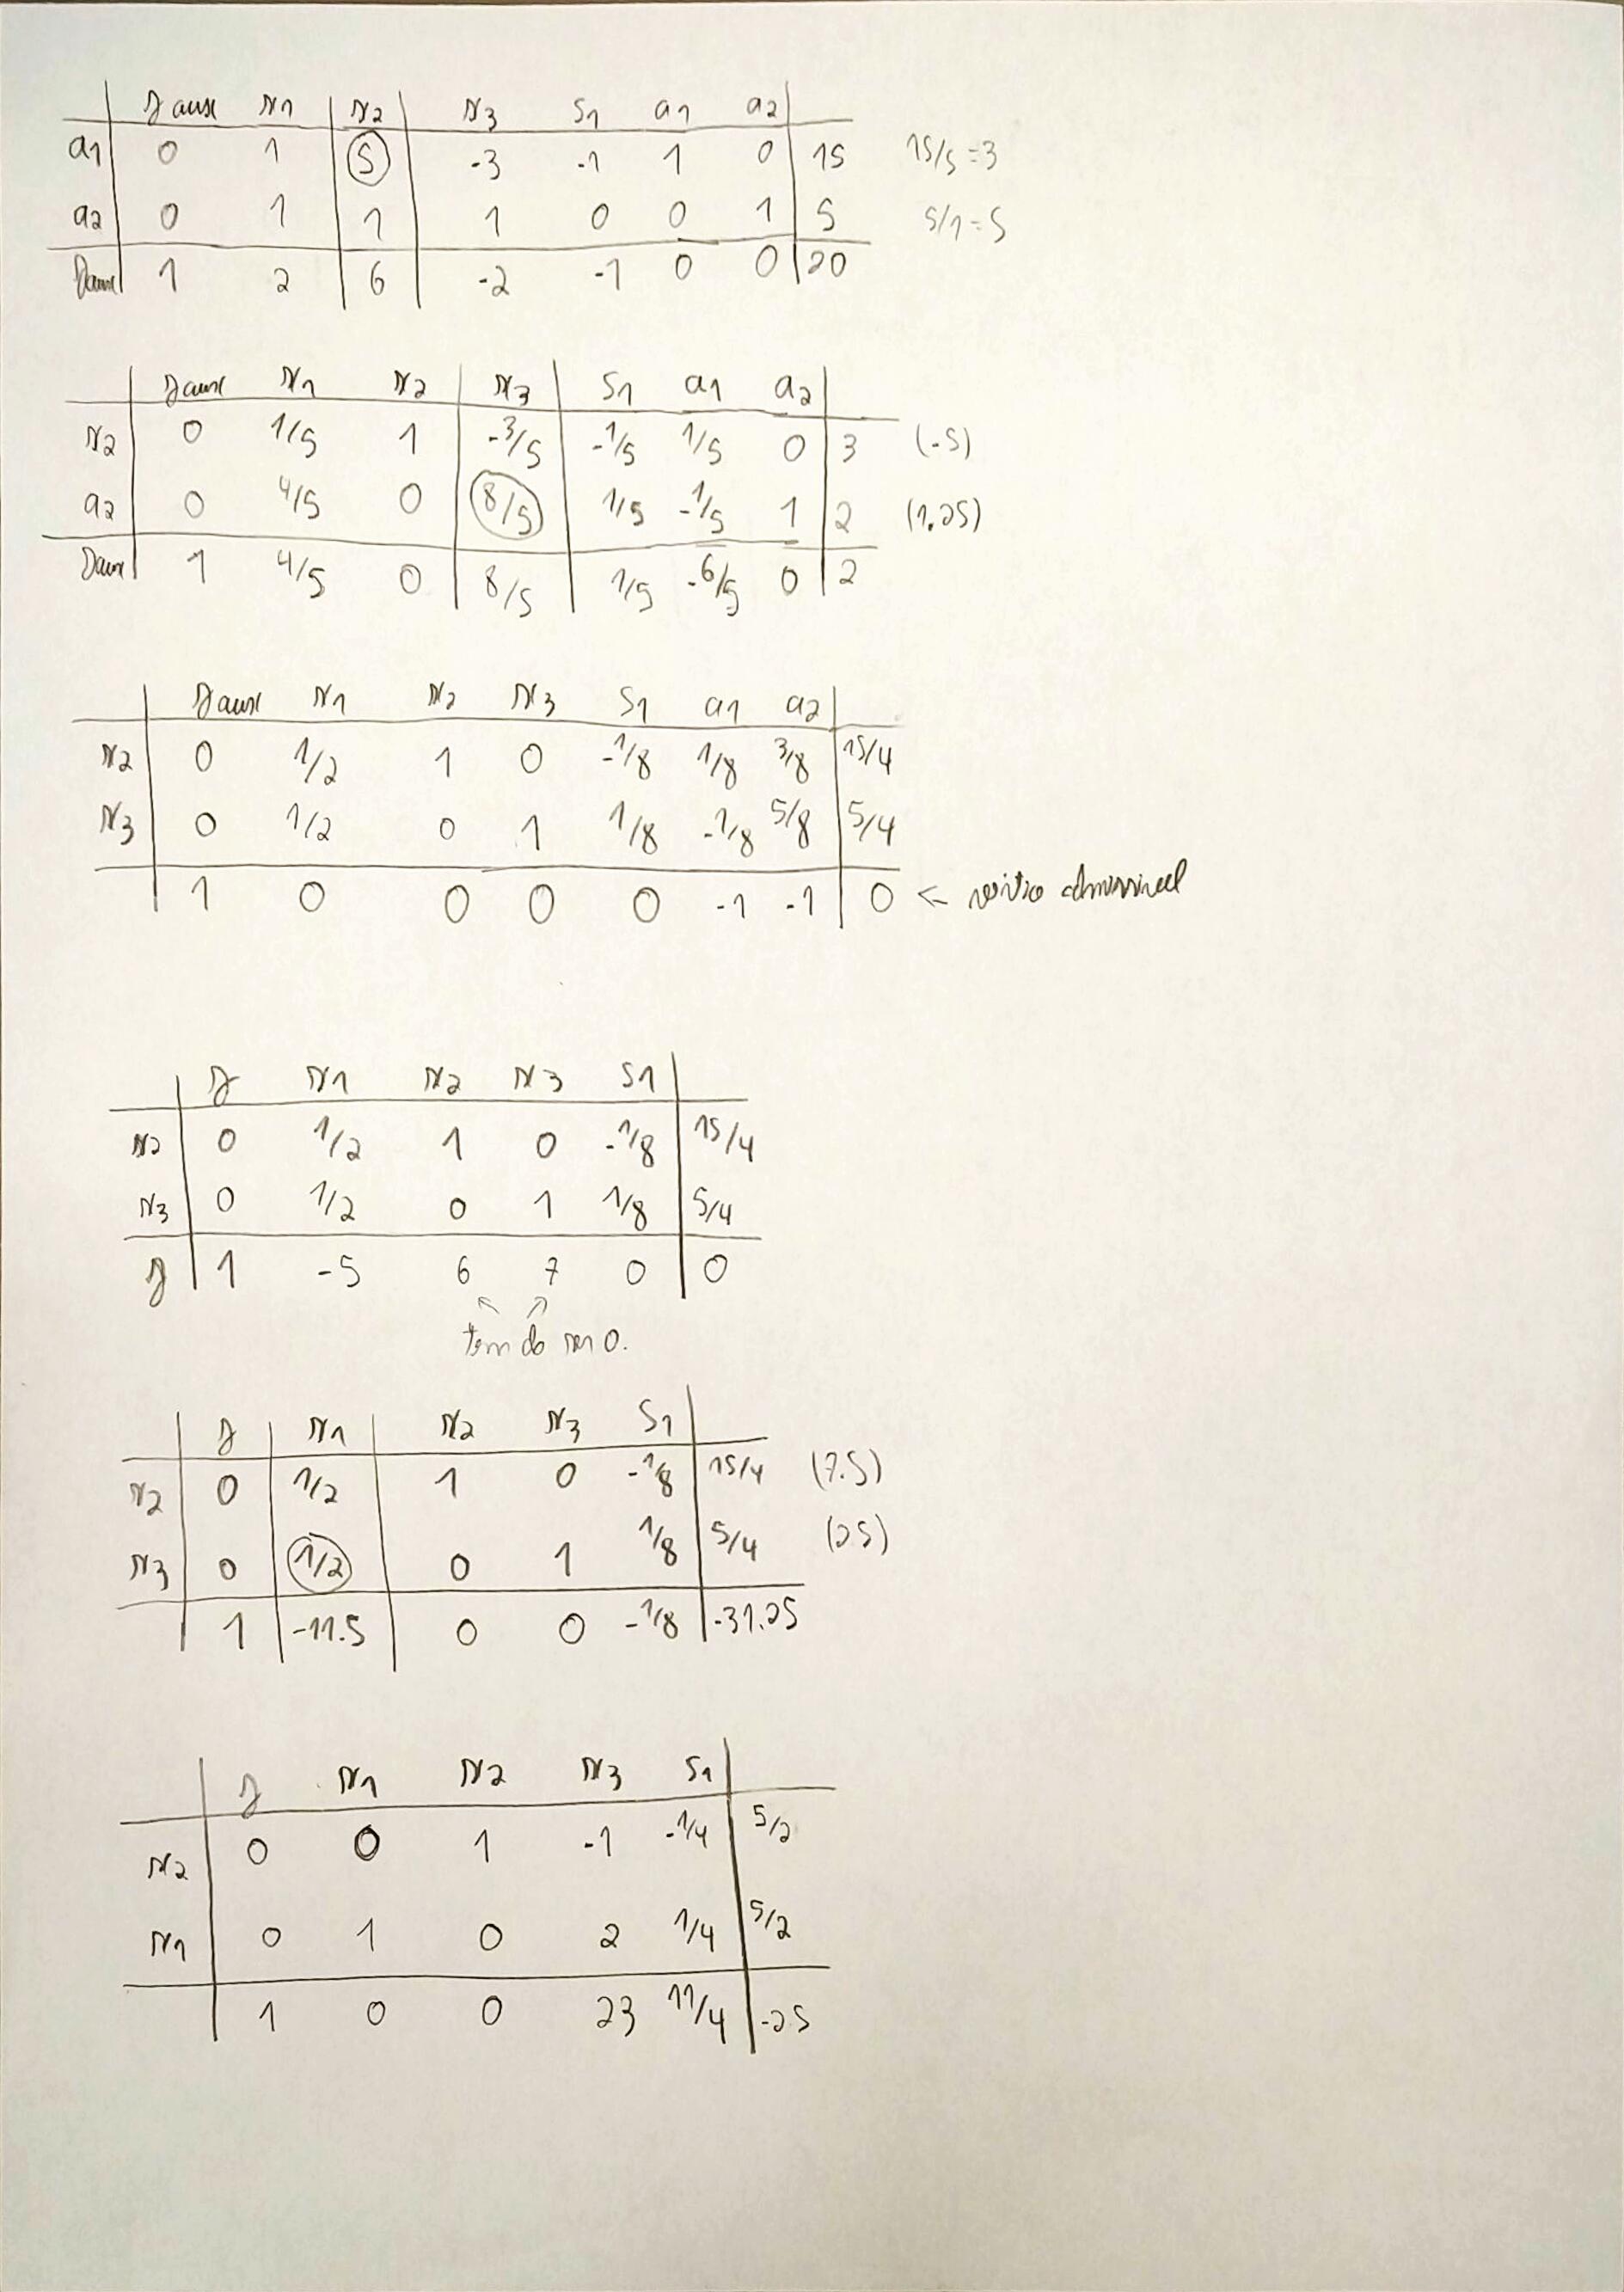 z aux x1 x2 x3 s1 a1 a2
a1 0 1 5 -3 -1 1 0 15 15/5=3
a2 0 1 1 1 0 0 1 5 5/1=5
zaux 1 2 6 -2 -1 0 0 20
zaux x1 x2 x3 s1 a1 a2
x2 0 1/5 1 -3/5 -1/5 1/5 0 3 (-5)
a2 0 4/5 0 8/5 1/5 -1/5 1 2 (1.25)
zaux 1 4/5 0 8/5 1/5 -6/5 0 2
z aux x1 x2 x3 s1 a1 a2
x2 0 1/2 1 0 -1/8 1/8 3/8 15/4
x3 0 1/2 0 1 1/8 -1/8 5/8 5/4
1 0 0 0 0 -1 -1 0 ← vértice admissível
z x1 x2 x3 s1
x2 0 1/2 1 0 -1/8 15/4
x3 0 1/2 0 1 1/8 5/4
z 1 -5 6 7 0 0
tem de ser 0.
z x1 x2 x3 s1
x2 0 1/2 1 0 -1/8 15/4 (7.5)
x3 0 1/2 0 1 1/8 5/4 (25)
1 -11.5 0 0 -1/8 -31.25
z x1 x2 x3 s1
x2 0 0 1 -1 -1/4 5/2
x1 0 1 0 2 1/4 5/2
1 0 0 23 11/4 -25